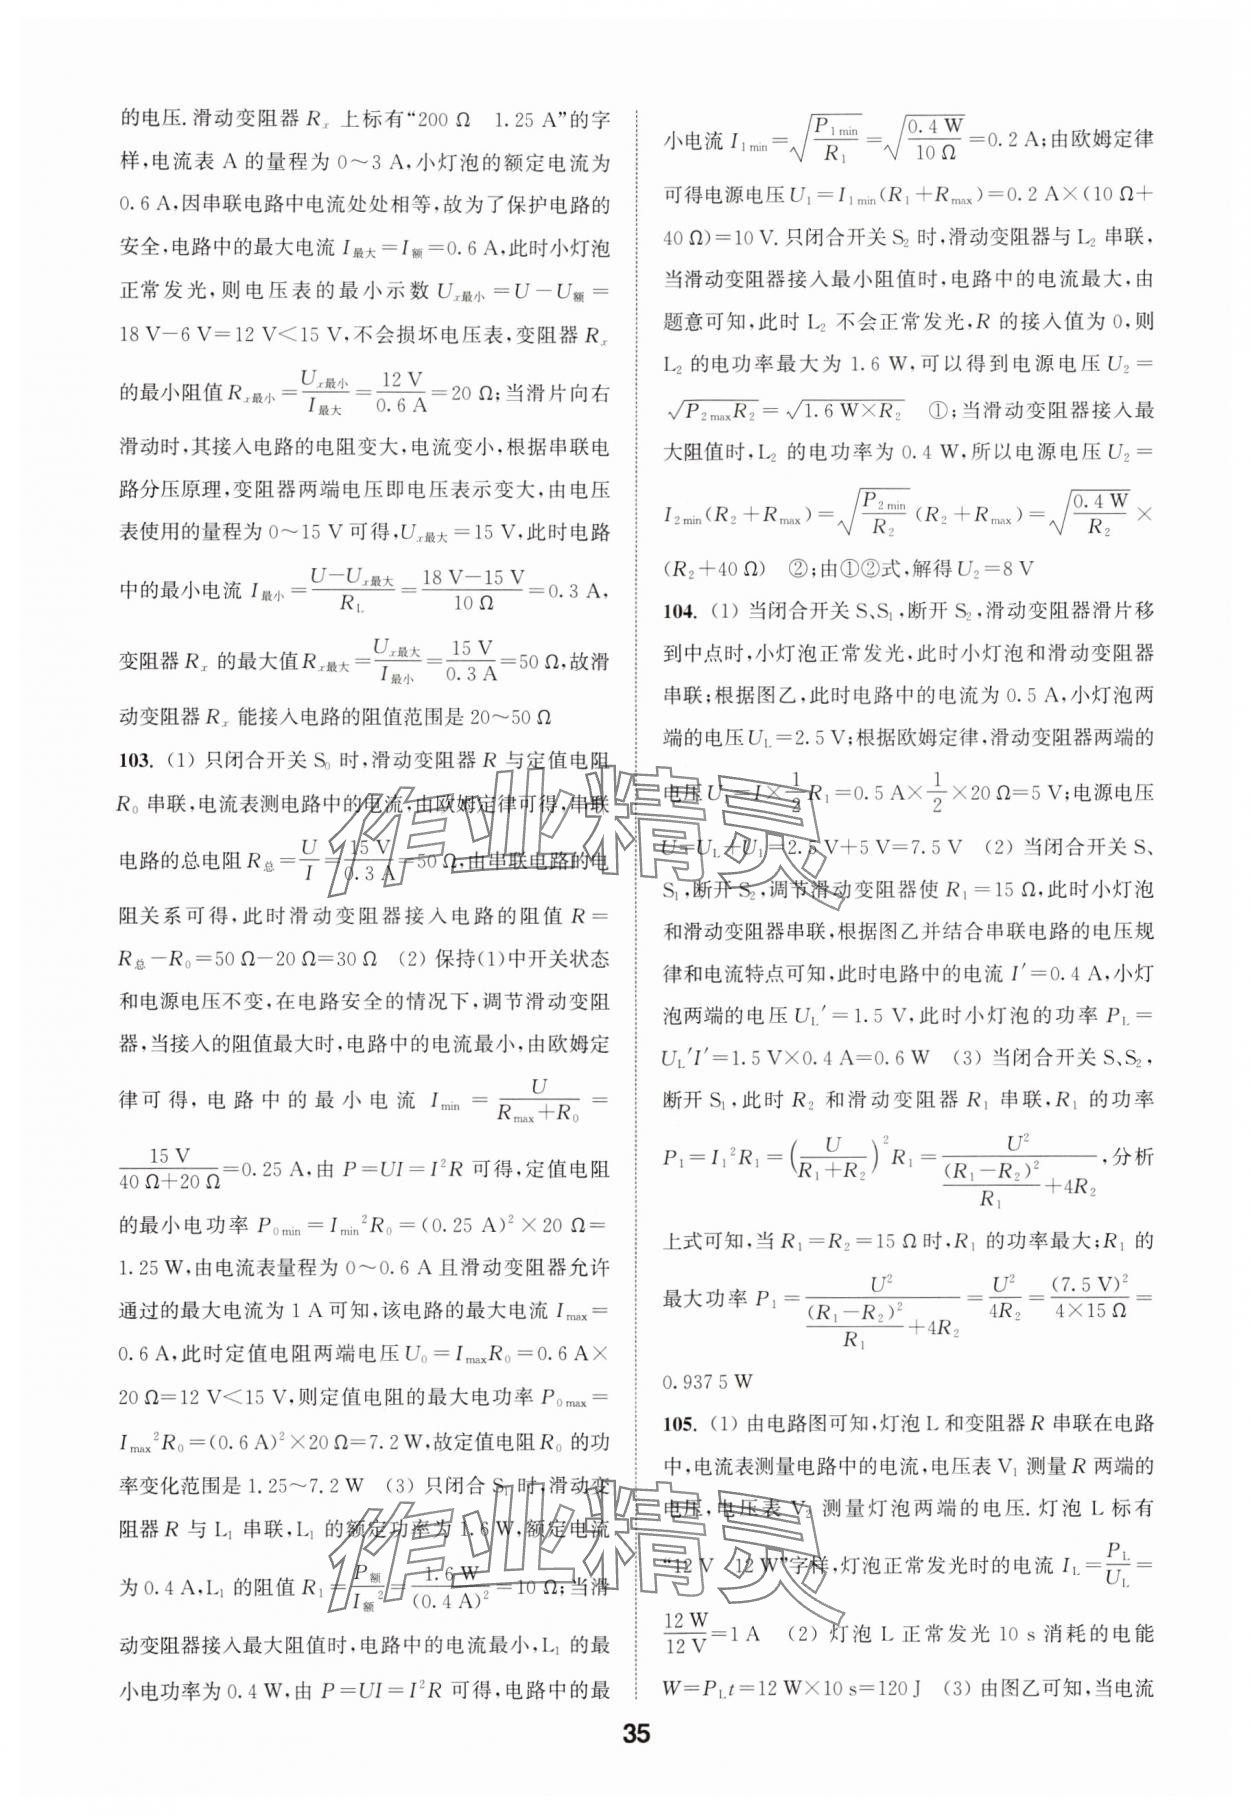 的电压. 滑动变阻器 Rₓ 上标有“200 Ω　1.25 A”的字
样, 电流表 A 的量程为 0～3 A, 小灯泡的额定电流为
0.6 A, 因串联电路中电流处处相等, 故为了保护电路的
安全, 电路中的最大电流 I最大=I额=0.6 A, 此时小灯泡
正常发光, 则电压表的最小示数 Uₓ最小=U−U额=
18 V−6 V=12 V<15 V, 不会损坏电压表, 变阻器 Rₓ
的最小阻值 Rₓ最小=Uₓ最小/I最大=12 V/0.6 A=20 Ω; 当滑片向右
滑动时, 其接入电路的电阻变大, 电流变小, 根据串联电
路分压原理, 变阻器两端电压即电压表示变大, 由电压
表使用的量程为 0～15 V 可得, Uₓ最大=15 V, 此时电路
中的最小电流 I最小=(U−Uₓ最大)/R_L=(18 V−15 V)/10 Ω=0.3 A,
变阻器 Rₓ 的最大值 Rₓ最大=Uₓ最大/I最小=15 V/0.3 A=50 Ω, 故滑
动变阻器 Rₓ 能接入电路的阻值范围是 20～50 Ω
103. (1) 只闭合开关 S₀ 时, 滑动变阻器 R 与定值电阻
R₀ 串联, 电流表测电路中的电流, 由欧姆定律可得, 串联
电路的总电阻 R总=U/I=15 V/0.3 A=50 Ω, 由串联电路的电
阻关系可得, 此时滑动变阻器接入电路的阻值 R=
R总−R₀=50 Ω−20 Ω=30 Ω　(2) 保持(1)中开关状态
和电源电压不变, 在电路安全的情况下, 调节滑动变阻
器, 当接入的阻值最大时, 电路中的电流最小, 由欧姆定
律可得, 电路中的最小电流 I_min=U/(R_max+R₀)=
15 V/(40 Ω+20 Ω)=0.25 A, 由 P=UI=I²R 可得, 定值电阻
的最小电功率 P₀min=I_min²R₀=(0.25 A)²×20 Ω=
1.25 W, 由电流表量程为 0～0.6 A 且滑动变阻器允许
通过的最大电流为 1 A 可知, 该电路的最大电流 I_max=
0.6 A, 此时定值电阻两端电压 U₀=I_maxR₀=0.6 A×
20 Ω=12 V<15 V, 则定值电阻的最大电功率 P₀max=
I_max²R₀=(0.6 A)²×20 Ω=7.2 W, 故定值电阻 R₀ 的功
率变化范围是 1.25～7.2 W　(3) 只闭合 S₁ 时, 滑动变
阻器 R 与 L₁ 串联, L₁ 的额定功率为 1.6 W, 额定电流
为 0.4 A, L₁ 的阻值 R₁=P额/I额²=1.6 W/(0.4 A)²=10 Ω; 当滑
动变阻器接入最大阻值时, 电路中的电流最小, L₁ 的最
小电功率为 0.4 W, 由 P=UI=I²R 可得, 电路中的最
小电流 I₁min=√(P₁min/R₁)=√(0.4 W/10 Ω)=0.2 A; 由欧姆定律
可得电源电压 U₁=I₁min(R₁+R_max)=0.2 A×(10 Ω+
40 Ω)=10 V. 只闭合开关 S₂ 时, 滑动变阻器与 L₂ 串联,
当滑动变阻器接入最小阻值时, 电路中的电流最大, 由
题意可知, 此时 L₂ 不会正常发光, R 的接入值为 0, 则
L₂ 的电功率最大为 1.6 W, 可以得到电源电压 U₂=
√(P₂maxR₂)=√(1.6 W×R₂)　①; 当滑动变阻器接入最
大阻值时, L₂ 的电功率为 0.4 W, 所以电源电压 U₂=
I₂min(R₂+R_max)=√(P₂min/R₂)(R₂+R_max)=√(0.4 W/R₂)×
(R₂+40 Ω)　②; 由①②式, 解得 U₂=8 V
104. (1) 当闭合开关 S、S₁, 断开 S₂, 滑动变阻器滑片移
到中点时, 小灯泡正常发光, 此时小灯泡和滑动变阻器
串联; 根据图乙, 此时电路中的电流为 0.5 A, 小灯泡两
端的电压 U_L=2.5 V; 根据欧姆定律, 滑动变阻器两端的
电压 U₁=I×1/2R₁=0.5 A×1/2×20 Ω=5 V; 电源电压
U=U_L+U₁=2.5 V+5 V=7.5 V　(2) 当闭合开关 S、
S₁, 断开 S₂, 调节滑动变阻器使 R₁=15 Ω, 此时小灯泡
和滑动变阻器串联, 根据图乙并结合串联电路的电压规
律和电流特点可知, 此时电路中的电流 I′=0.4 A, 小灯
泡两端的电压 U_L′=1.5 V, 此时小灯泡的功率 P_L=
U_L′I′=1.5 V×0.4 A=0.6 W　(3) 当闭合开关 S、S₂,
断开 S₁, 此时 R₂ 和滑动变阻器 R₁ 串联, R₁ 的功率
P₁=I₁²R₁=(U/(R₁+R₂))²R₁=U²/((R₁−R₂)²/R₁+4R₂), 分析
上式可知, 当 R₁=R₂=15 Ω 时, R₁ 的功率最大; R₁ 的
最大功率 P₁=U²/((R₁−R₂)²/R₁+4R₂)=U²/4R₂=(7.5 V)²/(4×15 Ω)=
0.937 5 W
105. (1) 由电路图可知, 灯泡 L 和变阻器 R 串联在电路
中, 电流表测量电路中的电流, 电压表 V₁ 测量 R 两端的
电压, 电压表 V₂ 测量灯泡两端的电压. 灯泡 L 标有
“12 V　12 W”字样, 灯泡正常发光时的电流 I_L=P_L/U_L=
12 W/12 V=1 A　(2) 灯泡 L 正常发光 10 s 消耗的电能
W=P_Lt=12 W×10 s=120 J　(3) 由图乙可知, 当电流
35
作业精灵
作业精灵